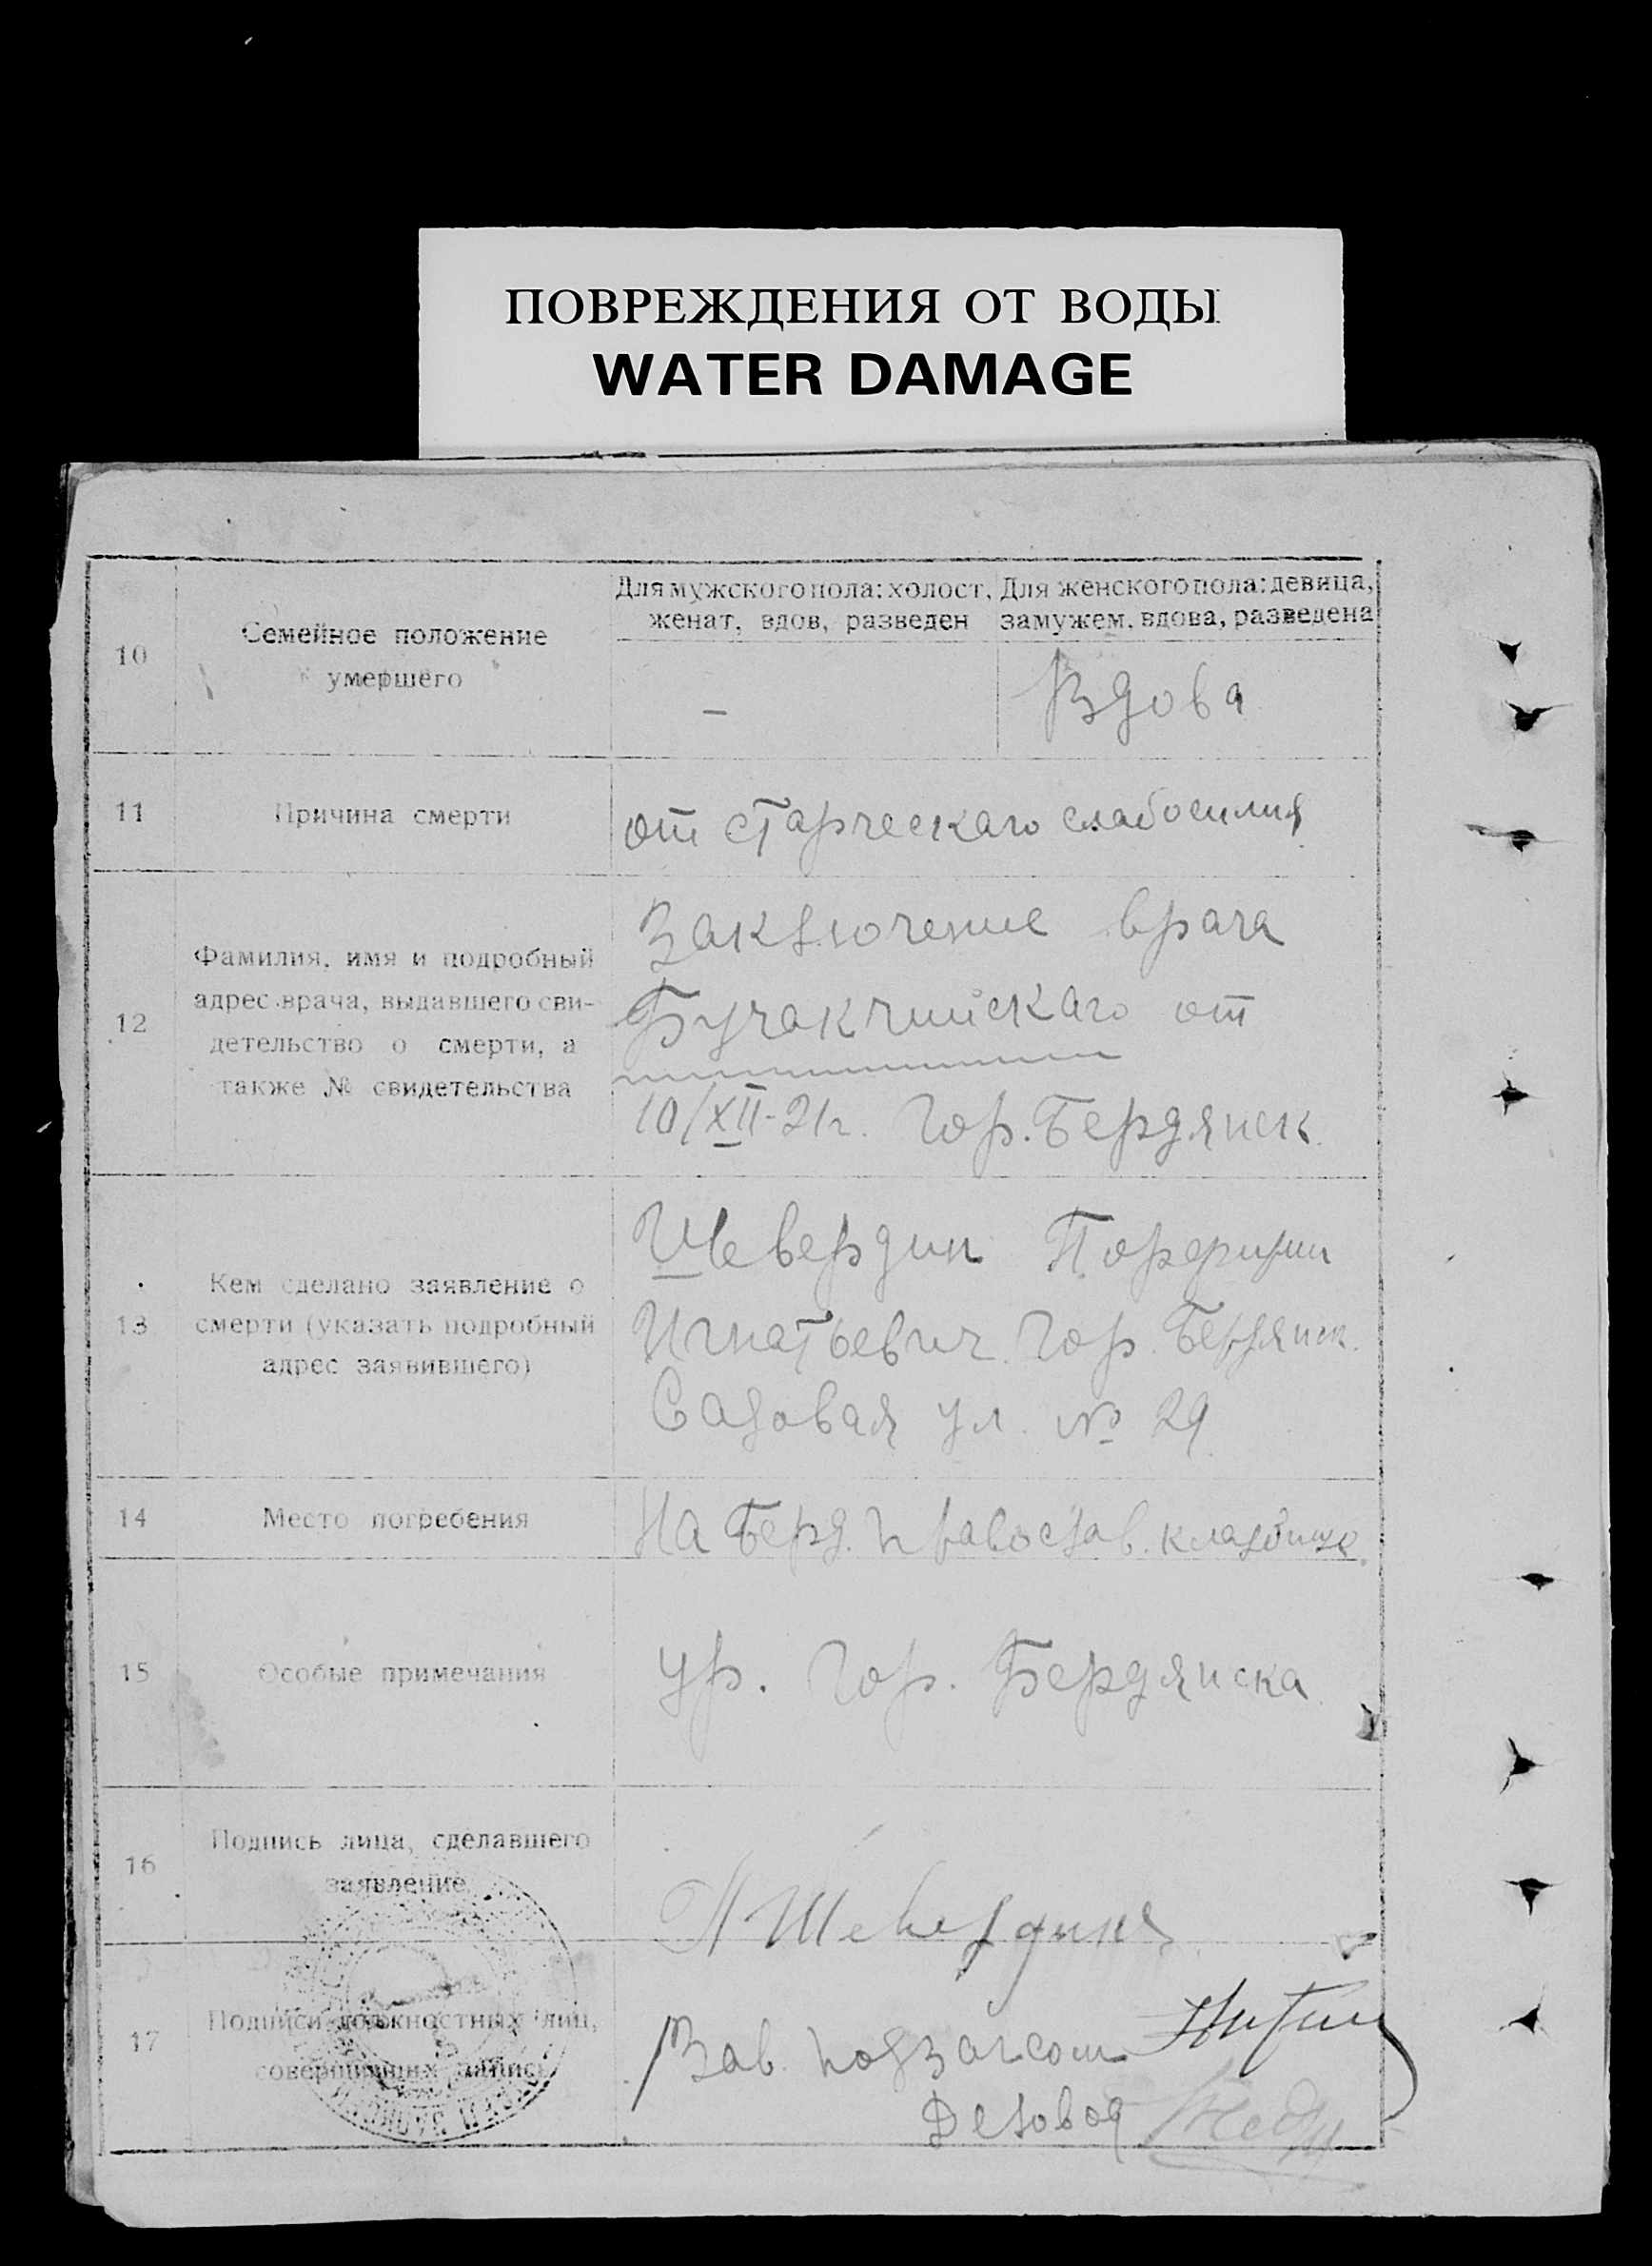 ПОВРЕЖДЕНИЯ ОТ ВОДЫ
WATER DAMAGE
10
Семейное положение
умершего
Для мужского пола: холост,
женат, вдов, разведен
Для женского пола: девица,
замужем, вдова, разведена
—
Вдова
11
Причина смерти
от старческаго слабосилия
12
Фамилия, имя и подробный
адрес врача, выдавшего сви-
детельство о смерти, а
также № свидетельства
Заключение врача
Бучакчийскаго от
10/XII-21г. Гор. Бердянск
13
Кем сделано заявление о
смерти (указать подробный
адрес заявившего)
Шевердин Порфирий
Игнатьевич Гор. Бердянск.
Садовая ул. № 29
14
Место погребения
На Берд. православ. кладбище.
15
Особые примечания
ур. Гор. Бердянска
16
Подпись лица, сделавшего
заявление
П Шевердинъ
17
Подписи должностных лиц,
совершивших запись
Зав. подзагсом
Деловод